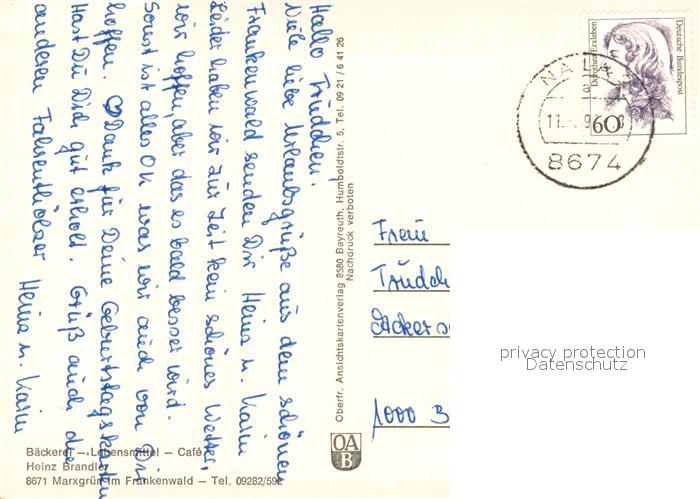 Hallo Trüdchen,
Viele liebe Urlaubsgrüße aus dem schönen
Frankenwald senden Dir Heinz u. Karin
Leider haben wir zur Zeit kein schönes Wetter,
wir hoffen, aber das es bald besser wird.
Sonst ist alles OK was wir auch von Dir
hoffen. Dank für Deine Geburtstagskarte
Hast Du Dich gut erholt. Grüß auch die
anderen Heinz u. Karin
Bäckerei — Lebensmittel — Café
Heinz Brandler
8671 Marxgrün im Frankenwald — Tel. 09282/59
Oberfr. Ansichtskartenverlag 8580 Bayreuth, Humboldtstr. 5, Tel. 09 21 / 6 41 26
Nachdruck verboten
OA
B
Deutsche Bundespost
Dorothea Erxleben
60
11.
8674
Frau
Trüdch
Ackers
1000 B
privacy protection
Datenschutz